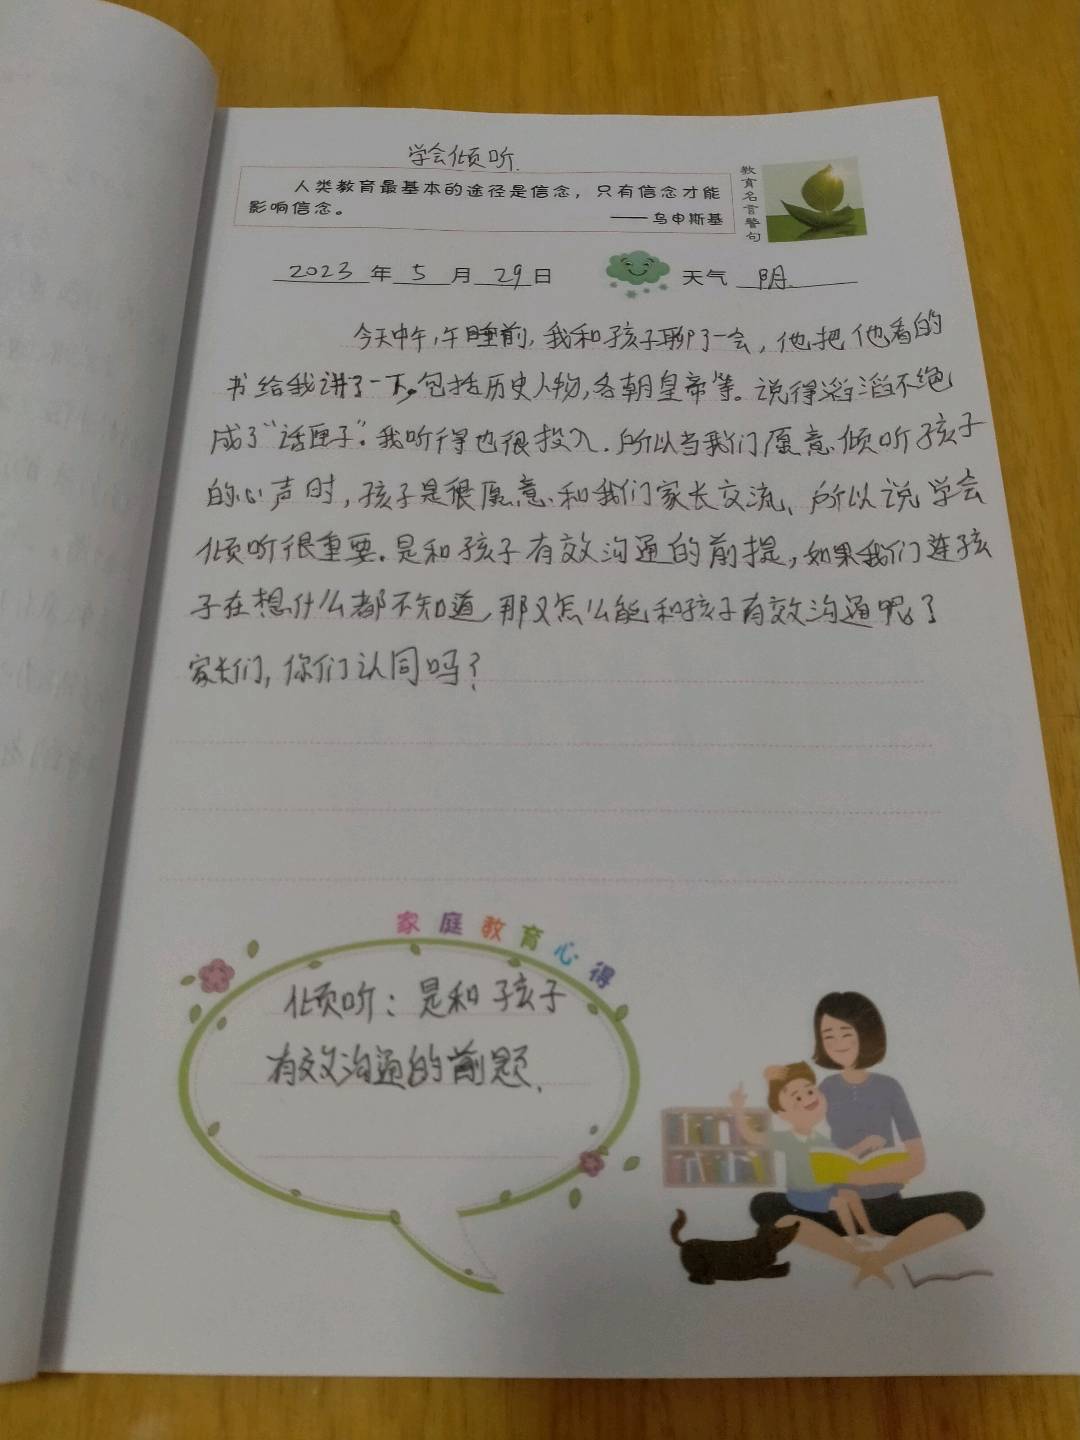 学会倾听.
人类教育最基本的途径是信念，只有信念才能
影响信念。
——乌申斯基
教育名言警句
2023年5月29日 天气 阴.
今天中午,午睡前,我和孩子聊了一会,他把他看的
书给我讲了一下。包括历史人物,各朝皇帝等。说得滔滔不绝
成了“话匣子”.我听得也很投入.所以当我们愿意倾听孩子
的心声时,孩子是很愿意和我们家长交流、所以说学会
倾听很重要.是和孩子有效沟通的前提,如果我们连孩
子在想什么都不知道,那又怎么能和孩子有效沟通呢?
家长们,你们认同吗?
家庭教育心得
倾听:是和孩子
有效沟通的前题.